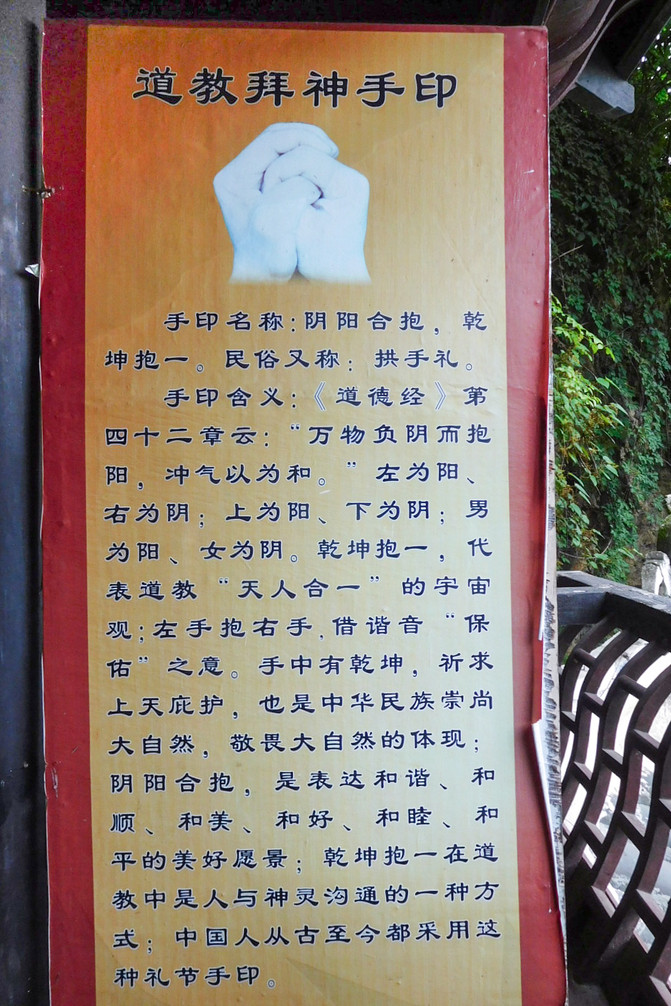 道教拜神手印
手印名称:阴阳合抱，乾
坤抱一。民俗又称：拱手礼。
手印含义:《道德经》第
四十二章云:“万物负阴而抱
阳，冲气以为和。”左为阳、
右为阴；上为阳、下为阴；男
为阳、女为阴。乾坤抱一，代
表道教“天人合一”的宇宙
观;左手抱右手.借谐音“保
佑”之意。手中有乾坤，祈求
上天庇护，也是中华民族崇尚
大自然，敬畏大自然的体现；
阴阳合抱，是表达和谐、和
顺、和美、和好、和睦、和
平的美好愿景；乾坤抱一在道
教中是人与神灵沟通的一种方
式；中国人从古至今都采用这
种礼节手印。